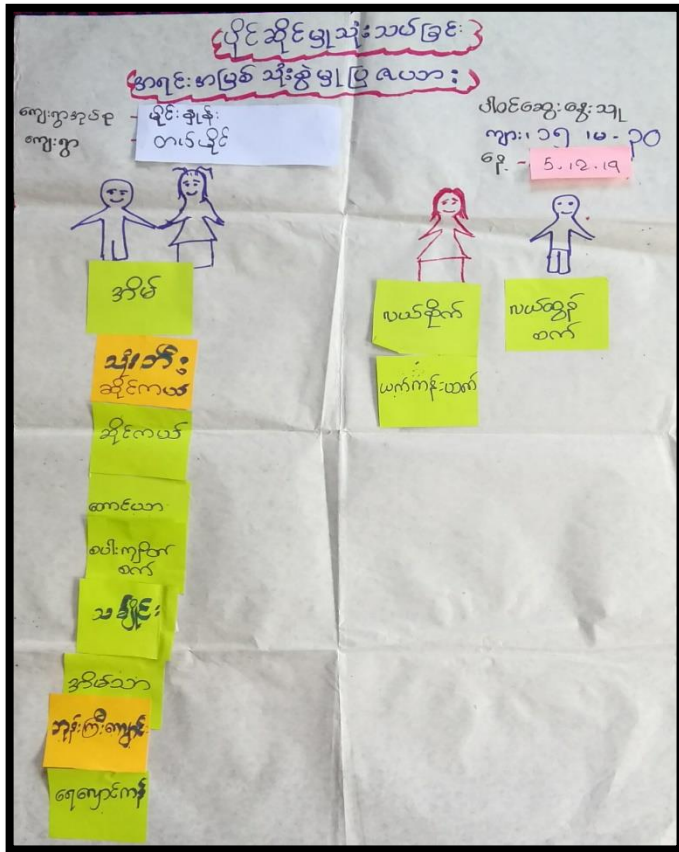 ပိုင်ဆိုင်မှုသုံးသပ်ခြင်း
အရင်းအမြစ် သုံးစွဲမှုပြဇယား
ကျေးရွာအုပ်စု - မိုင်းနှုန်း
ကျေးရွာ -
ပါဝင်ဆွေးနွေးသူ
ကျား၊ ၁၅ ၊ မ - ၃၀
နေ့ - 5.12.19
အိမ်
သုံးဘီး
ဆိုင်ကယ်
ဆိုင်ကယ်
တောင်ယာ
စပါးကြိတ်
စက်
အိမ်သာ
ဘုန်းကြီးကျောင်း
ရေလှောင်ကန်
လယ်စိုက်
ယက်ကန်းထောက်
လယ်ထွန်
စက်